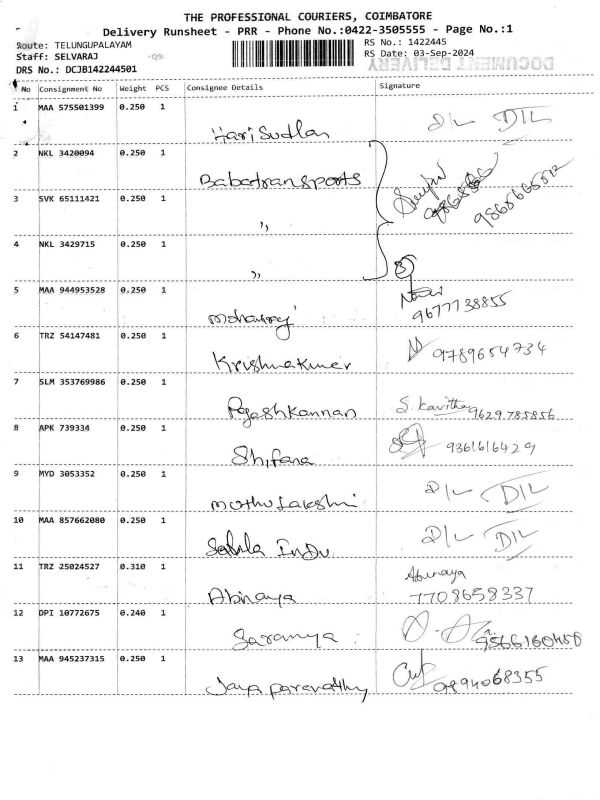 THE PROFESSIONAL COURIERS, COIMBATORE
Delivery Runsheet - PRR - Phone No.:0422-3505555 - Page No.:1
Route: TELUNGUPALAYAM RS No.: 1422445
Staff: SELVARAJ -Q9 RS Date: 03-Sep-2024
DOCUMENT DELIVERY
DRS No.: DCJB142244501
No Consignment No Weight PCS Consignee Details Signature
1 MAA 575501399 0.250 1
Hari Sudhan D/L D/L
2 NKL 3420094 0.250 1
Babatransports
3 SVK 65111421 0.250 1
,,
4 NKL 3429715 0.250 1
,, 3
5 MAA 944953528 0.250 1
Mohanraj 9677738855
6 TRZ 54147481 0.250 1
Krishnakumar 9789654734
7 SLM 353769986 0.250 1
Rajeshkannan S. Kavitha 9629785856
8 APK 739334 0.250 1
Shifana 9361616429
9 MYD 3053352 0.250 1
Muthulakshmi D/L D/L
10 MAA 857662080 0.250 1
Indu D/L D/L
11 TRZ 25024527 0.310 1
Abinaya Abinaya
7708658337
12 DPI 10772675 0.240 1
Saranya
13 MAA 945237315 0.250 1
Jaya Paravathy 9894068355